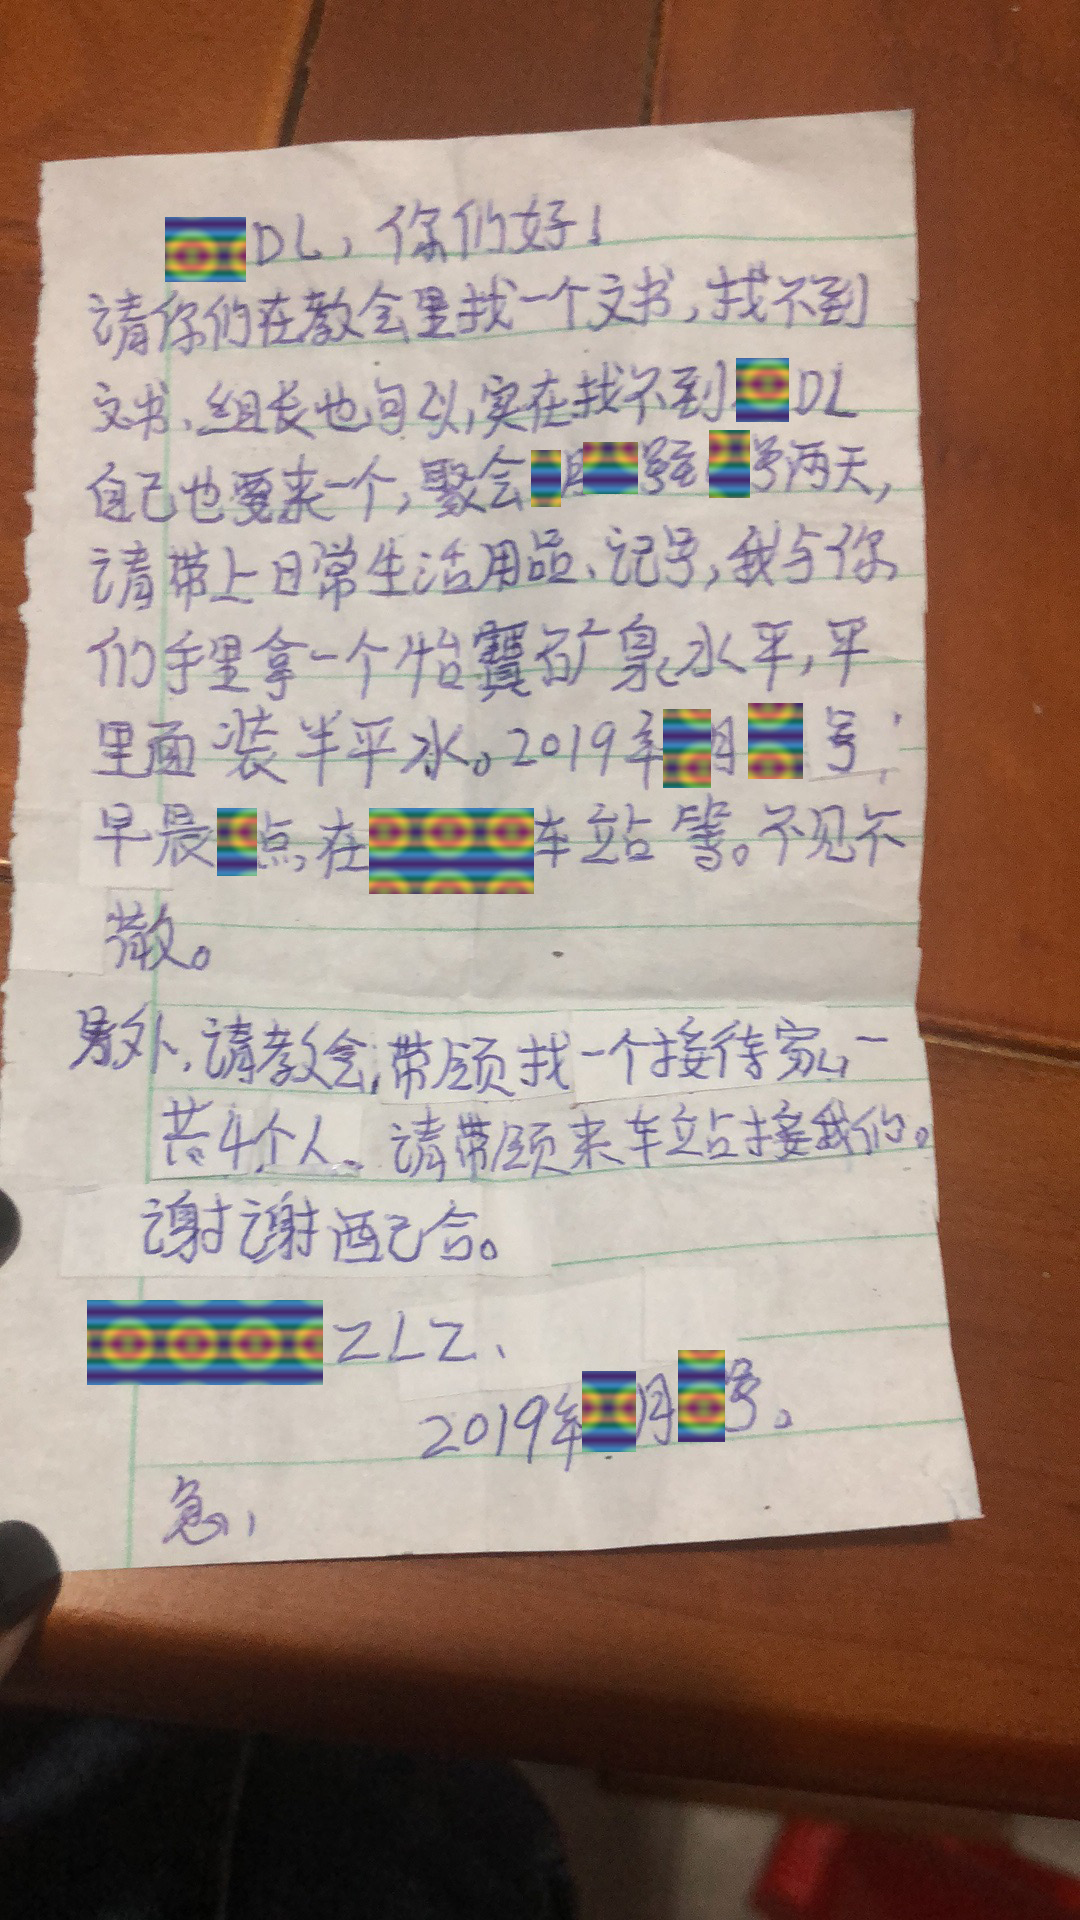 DL，你们好！
请你们在教会里找一个文书，找不到
文书、组长也可以，实在找不到DL
自己也要来一个，聚会月号至号两天，
请带上日常生活用品、记号，我与你
们手里拿一个怡寶矿泉水平，平
里面装半平水。2019年月号
早晨点，在车站等。不见不
散。
另外，请教会，带领找一个接待家，一
共4个人、请带领来车站接我们。
谢谢配合。
ZLZ、
2019年月号。
急，